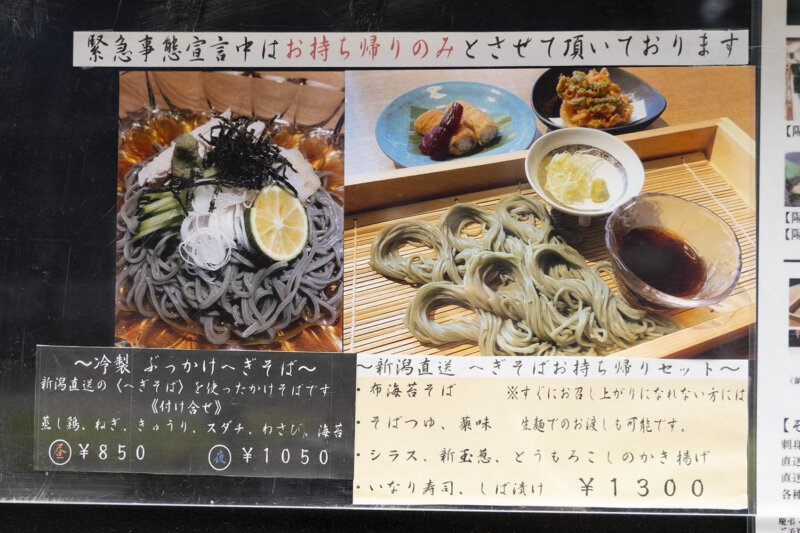 緊急事態宣言中はお持ち帰りのみとさせて頂いております
～冷製 ぶっかけへぎそば～
新潟直送の〈へぎそば〉を使ったかけそばです
《付け合せ》
蒸し鶏、ねぎ、きゅうり、スダチ、わさび、海苔
昼 ￥850 夜 ￥1050
～新潟直送 へぎそばお持ち帰りセット～
・布海苔そば ※すぐにお召し上がりになれない方には
・そばつゆ、薬味 生麺でのお渡しも可能です。
・シラス、新玉葱、とうもろこしのかき揚げ
・いなり寿司、しば漬け ￥1300
【そ
刺身
直送
直送
各種